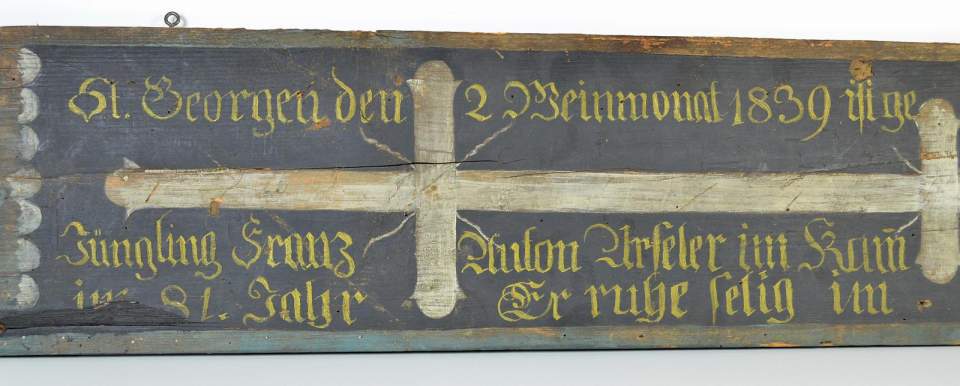 St. Georgen den 2 Weinmonat 1839 ist ge
Jüngling Franz Anton Arseler im Kam̅
im 81. Jahr Er ruhe selig im